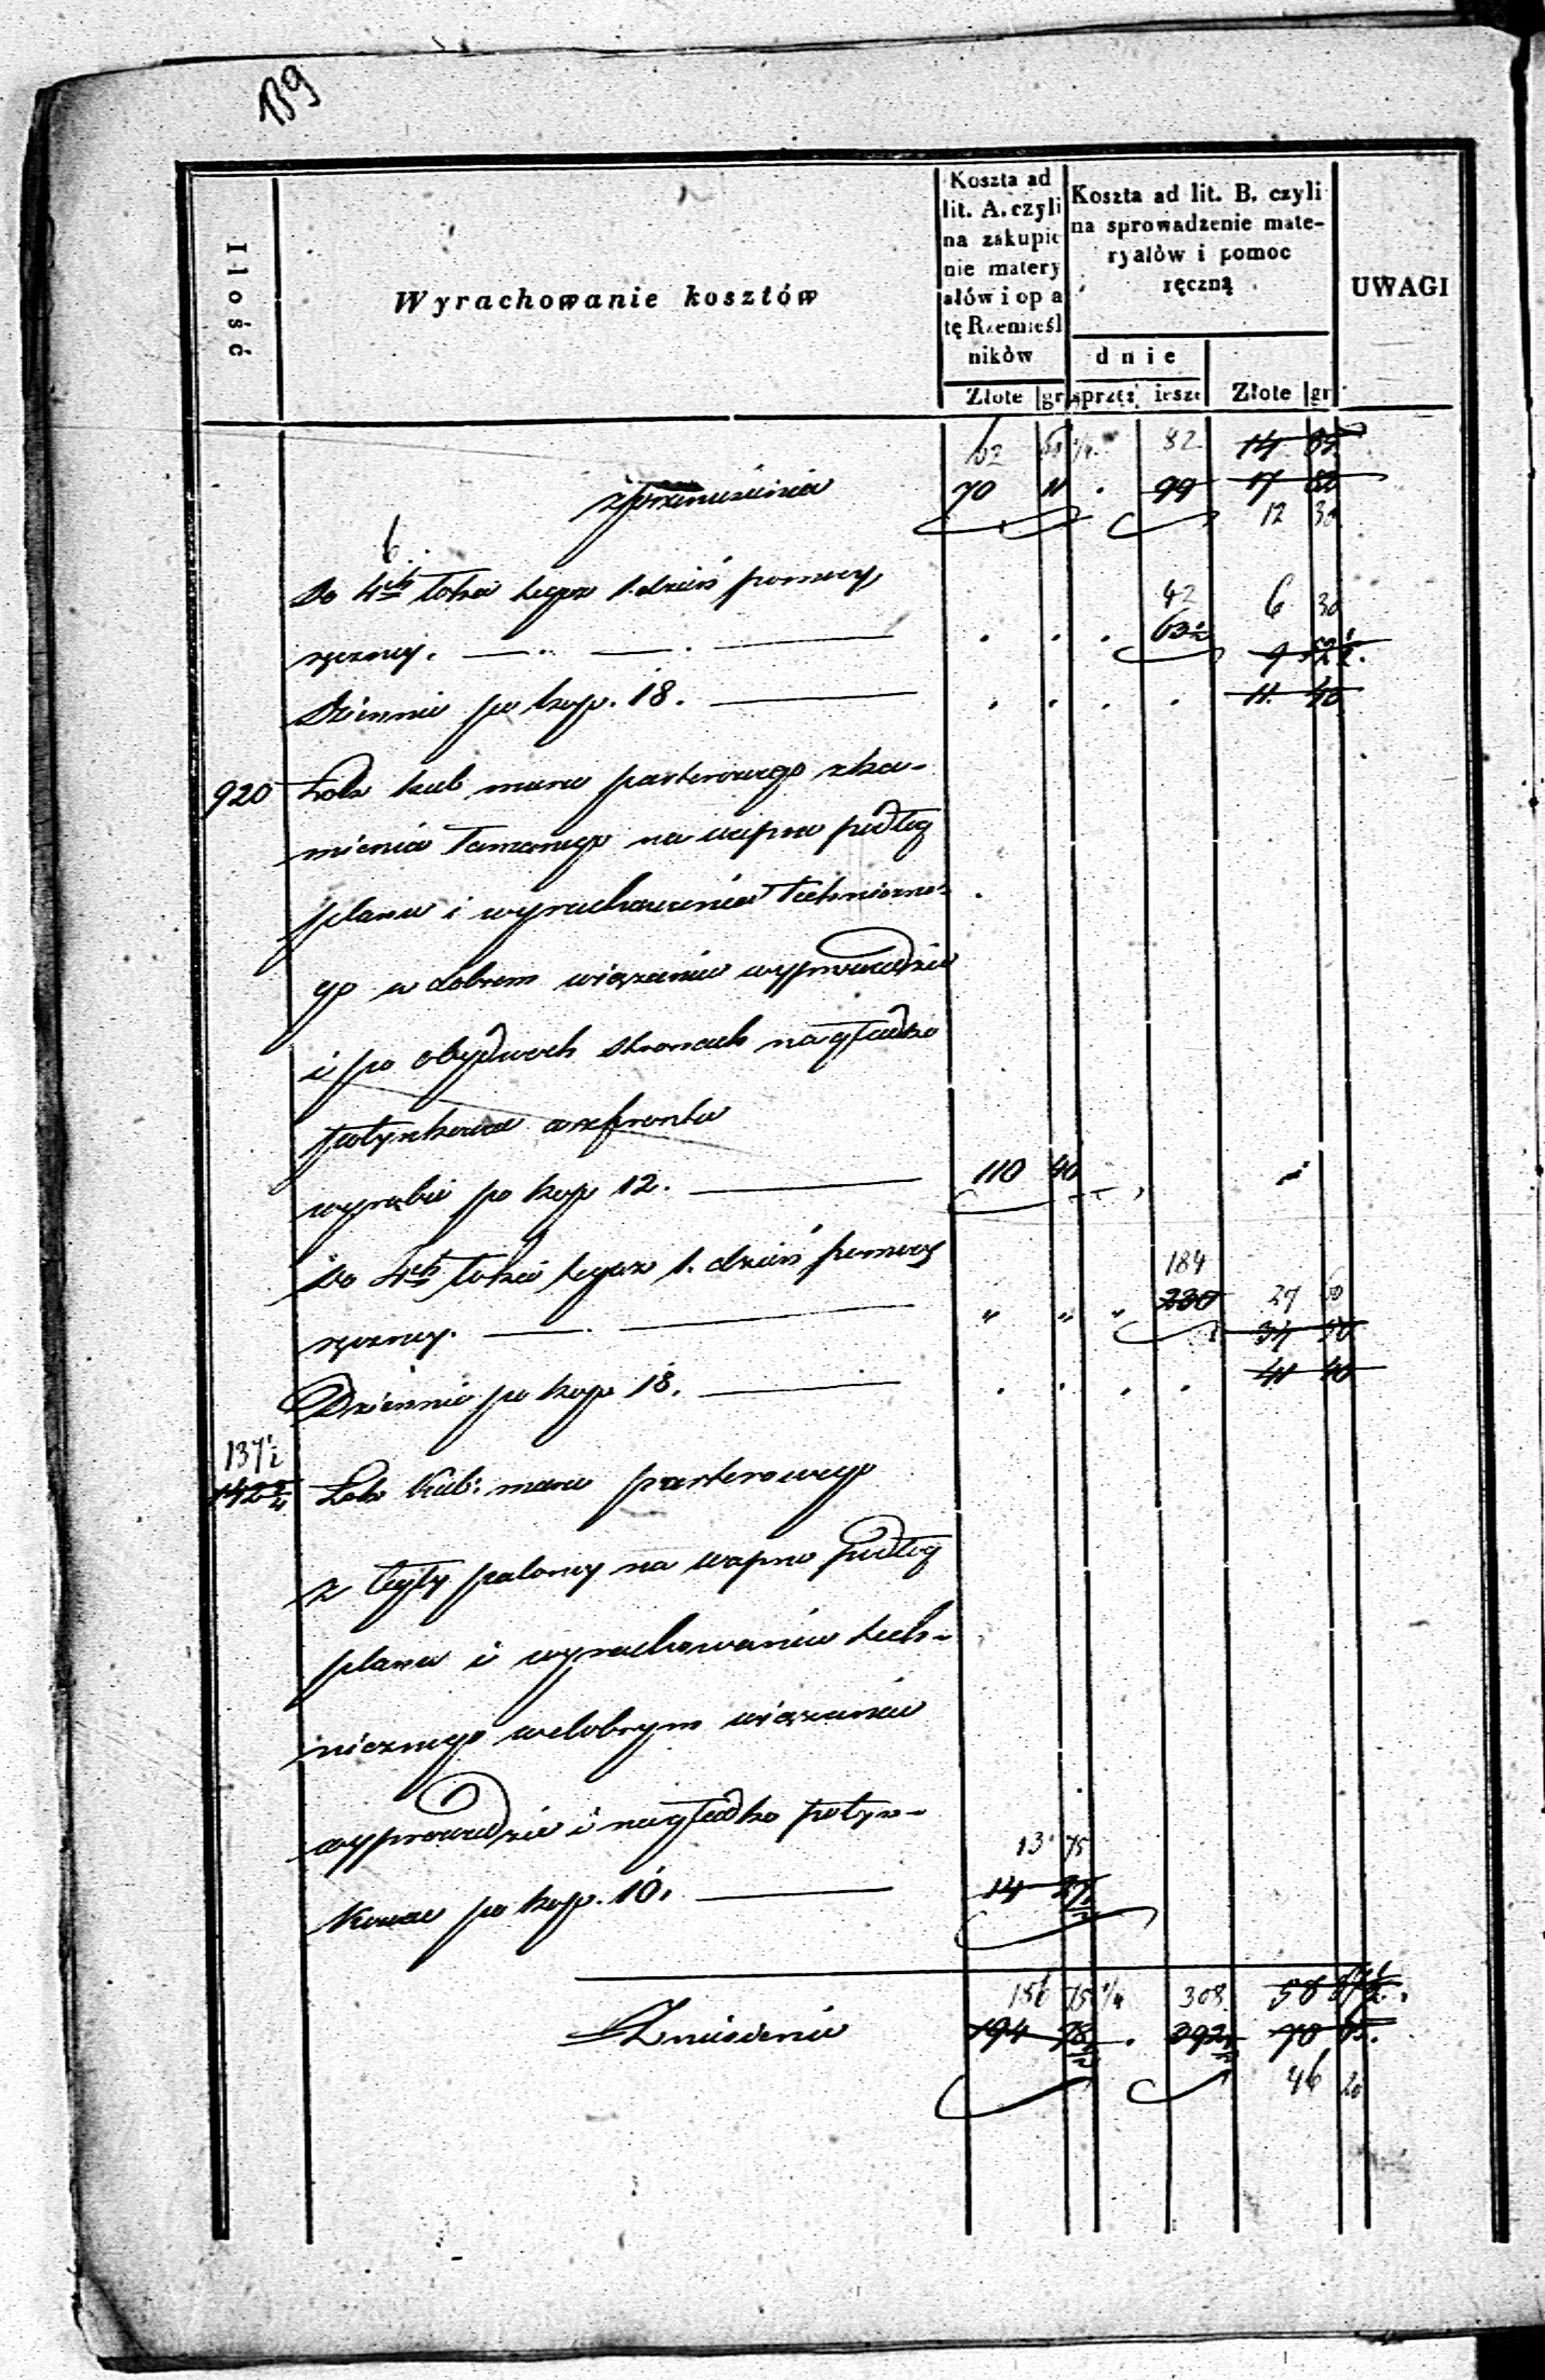 139
Ilość
Wyrachowanie kosztów
Koszta ad
lit. A. czyli
na zakupie
nie matery
ałów i op a
tę Rzemieśl
ników
Złote gr
Koszta ad lit. B. czyli
na sprowadzenie mate-
ryałów i pomoc
ręczną
dnie
sprzęż iesze Złote gr
UWAGI
62 82 14
z przeniesienia 70 11 . 99 17 50
12 30
6
Do 4ch łokci tegoż 1. dzień pomocy 42 6 30
ręczney. . . . 63½ 9 52½.
Dziennie po kop. 18. . . . . 11. 40
920 Łok kub muru parterowego z ka-
mienia łamanego na wapno podług
planu i wyrachowania techniczne-
go w dobrem wiązaniu wyprowadzić
i po obydwoch stronach na gładko
potynkować
wyrobić po kop 12. 110 40
Do 4ch łokci tegoż 1. dzień pomocy 184
ręczney. " " " 230 27 60
34 50
Dziennie po kop 18. . . . . 41 40
137½
142¾ Łok Kub: muru parterowego
z cegły paloney na wapno podług
planu i wyrachowania tech-
nicznego w dobrym wiązaniu
wyprowadzić i na gładko potyn- 13 75
kować po kop. 10. 14 27½
186 75 ¼ 308 58 87½.
Zniesienie 194 78½ . 392½ 70 65.
46 20